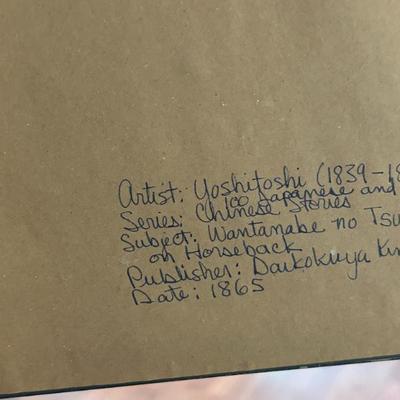 Artist: Yoshitoshi (1839-18
100 Japanese and
Series: Chinese Stories
Subject: Wantanabe no Tsu
on Horseback
Publisher: Daikokuya Kin
Date: 1865